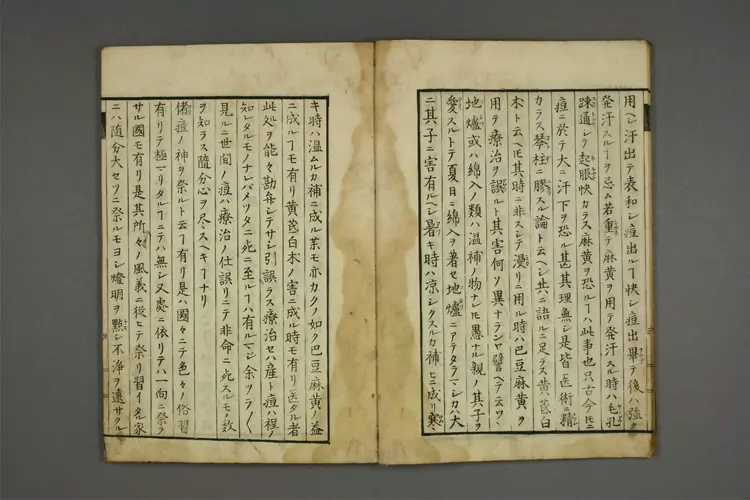 用ヘシ汗出テ表和シ痘出ルヿ快シ痘出畢テ後ハ強ク
発汗スルヿヲ忌ム若重テ麻黄ヲ用テ発汗スル時ハ毛孔
疎通シテ起脹快カラス麻黄ヲ恐ルヿハ此事也只古今ニ
痘ニ於テ大ニ汗下ヲ恐ル甚其理無シ是皆医術ニ精
カラス琴柱ニ膠スル論ト云ヘシ共ニ語ルニ足ラス黄芪白
木ト云ヘ𪜈其時ニ非スシテ漫リニ用ル時ハ巴豆麻黄ヲ
用テ療治ヲ誤ルト其害何ソ異ナランヤ譬ヘテ云ワヽ
地爐或ハ綿入ノ類ハ温補ノ物ナレ𪜈愚ナル親ノ其子ヲ
愛スルトテ夏日ニ綿入ヲ著セ地爐ニアテタラマシカハ大
ニ其子ニ害有ルヘシ暑キ時ハ凉シクスルカ補ヒニ成リ寒
キ時ハ温ムルカ補ニ成ル薬モ亦カクノ如ク巴豆麻黄ノ益
ニ成ルヿモ有リ黄芪白木ノ害ニ成ル時モ有リ医タル者
此処ヲ能々勘弁シテサシ引誤ラス療治セハ産ト痘ハ程ノ
知レタルモノナレハメツタニ死ニ至ルヿハ有ルマシ余ツラ〳〵
見ルニ世間ノ痘ハ療治ノ仕誤リニテ非命ニ死スルモノ数
ヲ知ラス隨分心ヲ尽スヘキヿナリ
偖痘ノ神ヲ祭ルト云ヿ有リ是ハ國々ニテ色々ノ俗習
有リテ極マリタルヿニテハ無シ又處ニ依リテハ一向ニ祭ラ
サル國モ有リ是其所々ノ風義ニ従ヒテ祭リ習イ名家
ニハ随分大セツニ祭ルモヨシ燈明ヲ點シ不浄ヲ遠サクル